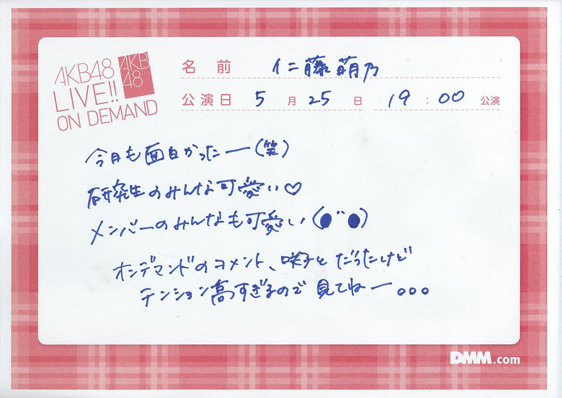 AKB48
LIVE!!
ON DEMAND
AKB
48
名前 仁藤萌乃
公演日 5月25日 19:00公演
今日も面白かったー(笑)
研究生のみんな可愛い♡
メンバーのみんなも可愛い(●¨●)
オンデマンドのコメント、咲子とだったけど
テンション高すぎるので見てねー。。。
DMM.com